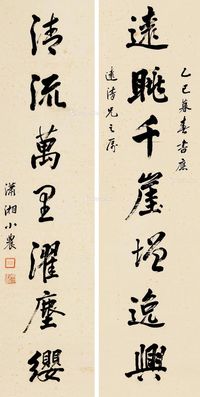 乙巳暮春書應
遠眺千崖增逸興
兄之屬
清流萬里濯塵纓
瀟湘小農